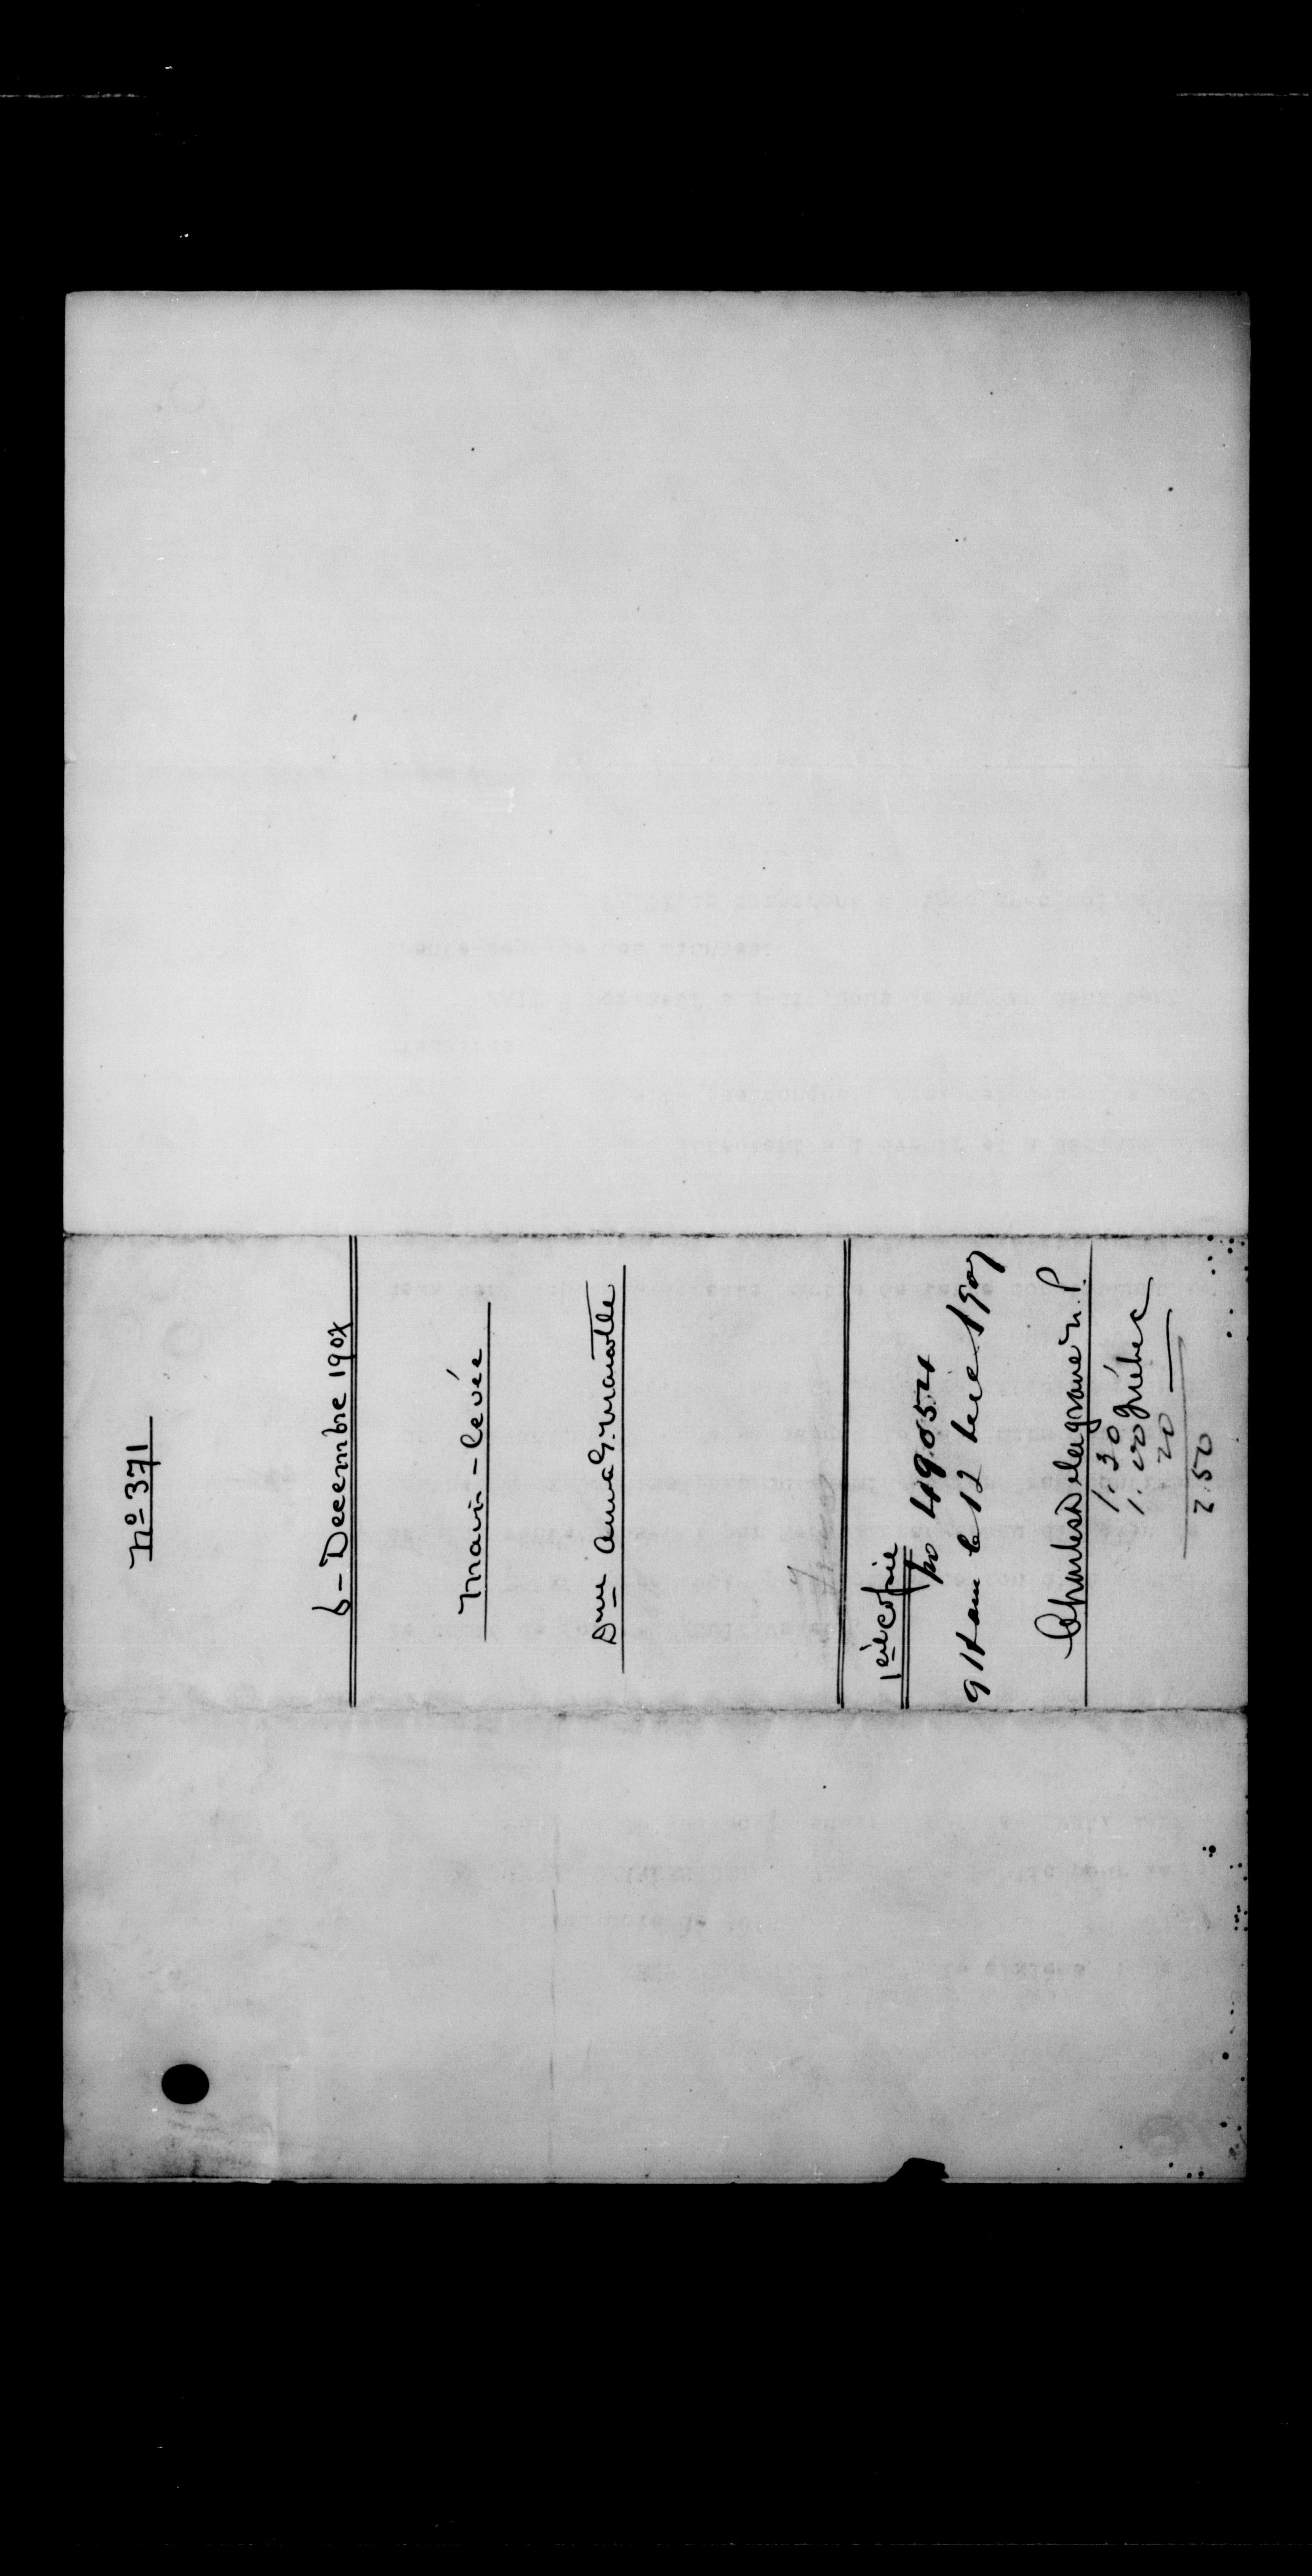 No 371
6 - Decembre 1907
Main-levée
Dme Anna G. Marcotte
1ère Copie
No 49054
9 H am le 12 Dec 1907
Charles Delagrave N.P.
Québec
1.30
1.00
20
2.50